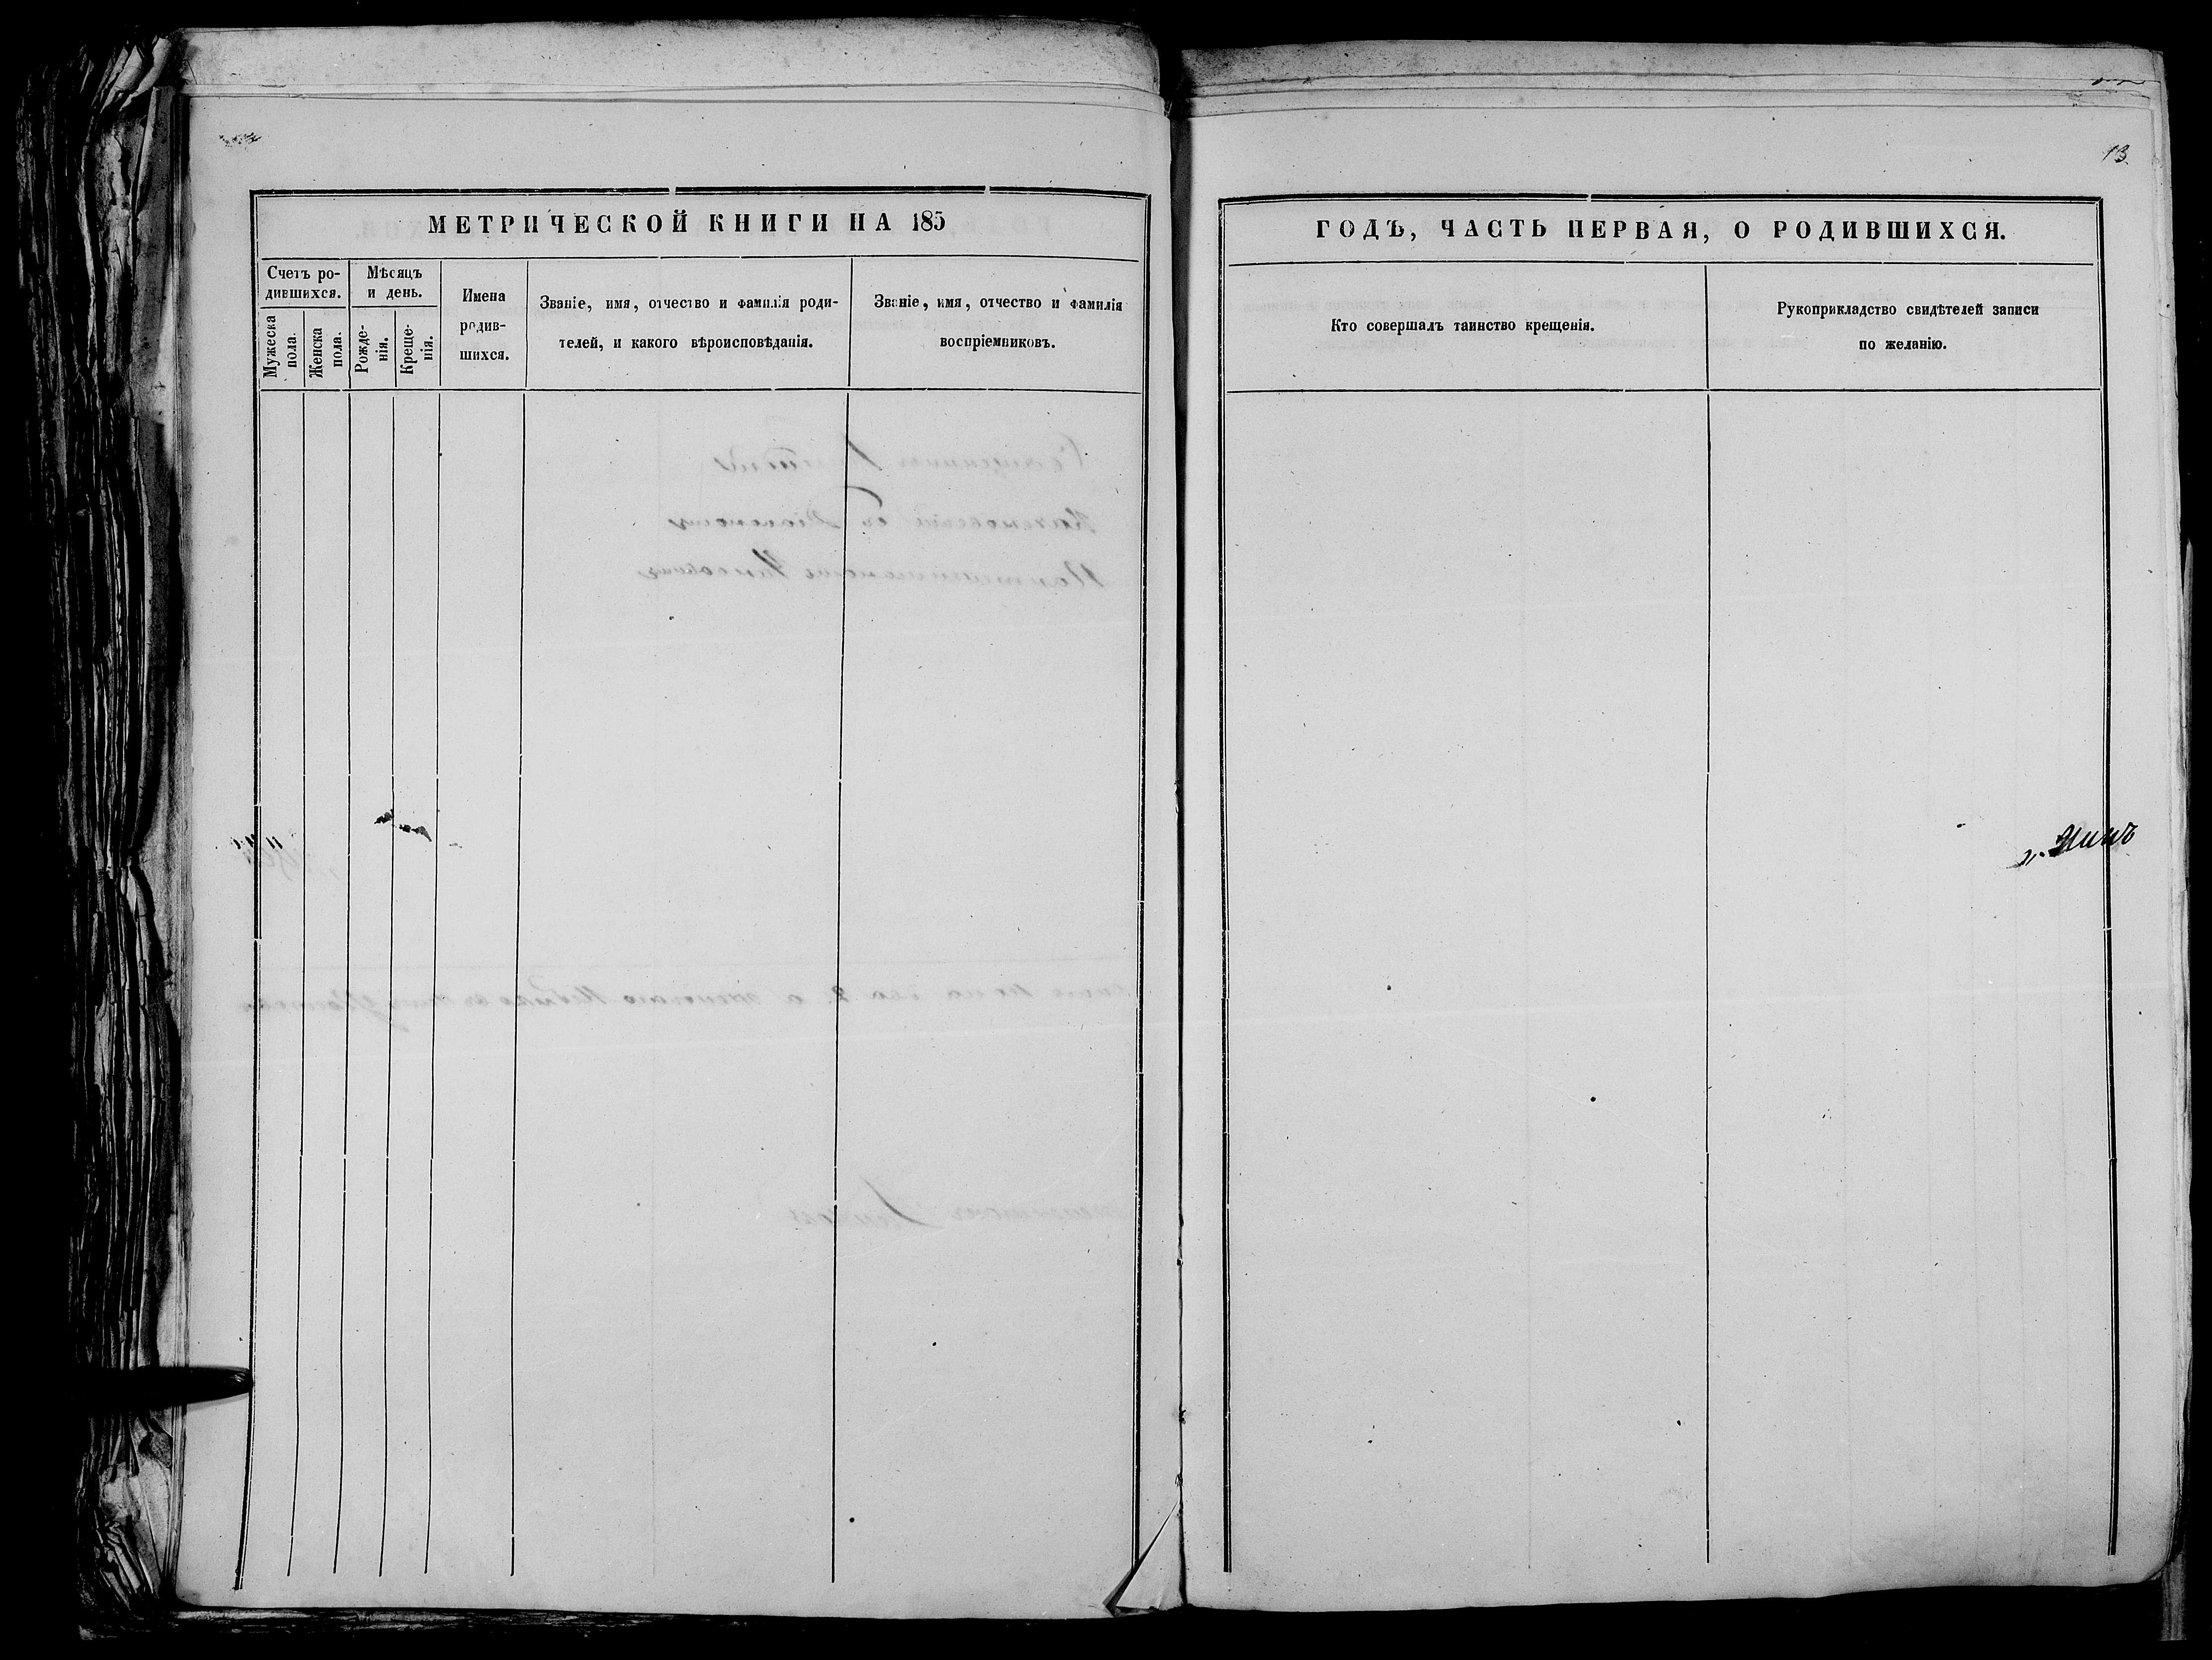 13
МЕТРИЧЕСКОЙ КНИГИ НА 185
ГОДЪ, ЧАСТЬ ПЕРВАЯ, О РОДИВШИХСЯ.
Счетъ ро-
дившихся.
Мужеска
пола.
Женска
пола.
Мѣсяцъ
и день.
Рожде-
нія.
Креще-
нія.
Имена
родив-
шихся.
Званіе, имя, отчество и фамилія роди-
телей, и какого вѣроисповѣданія.
Званіе, имя, отчество и фамилія
воспріемниковъ.
Кто совершалъ таинство крещенія.
Рукоприкладство свидѣтелей записи
по желанію.